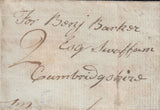 For Benj Barker
Esq Swaffham
2
Cambridgshire